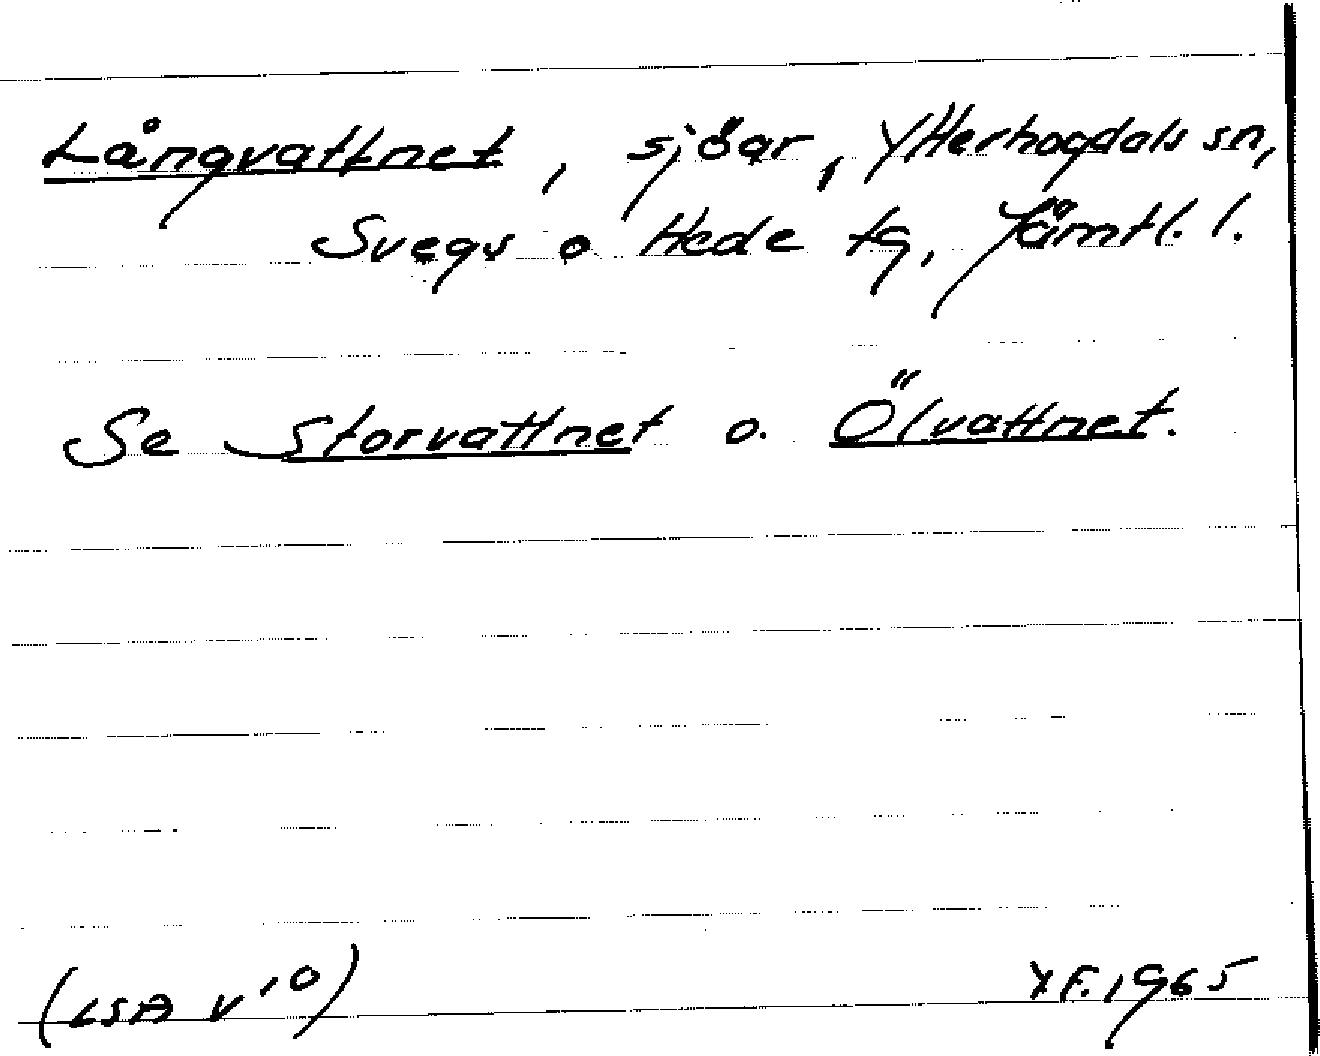 Långvattnet, sjöar, Ytterhogdals sn,
Svegs o Hede tg, Jämtl. l.
Se Storvattnet o. Ölvattnet.
(LSA V 10) Y F. 1965